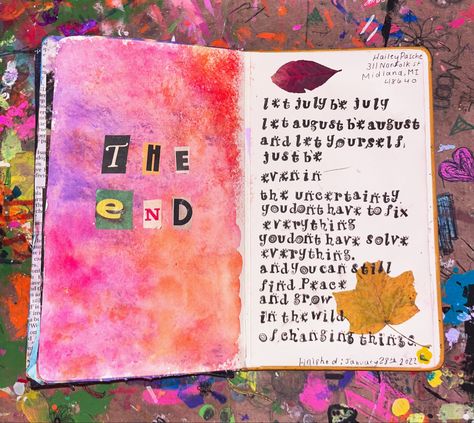 THE
eND
Hailey Pasche
311 Norfolk st
Midland, MI
48640
let july be july
let august be august
and let yourself
just be
even in
the uncertainty
you dont have to fix
everything
you dont have solve
everything.
and you can still
find peace
and grow
in the wild
of changing things.
Finished: January 28th 2022